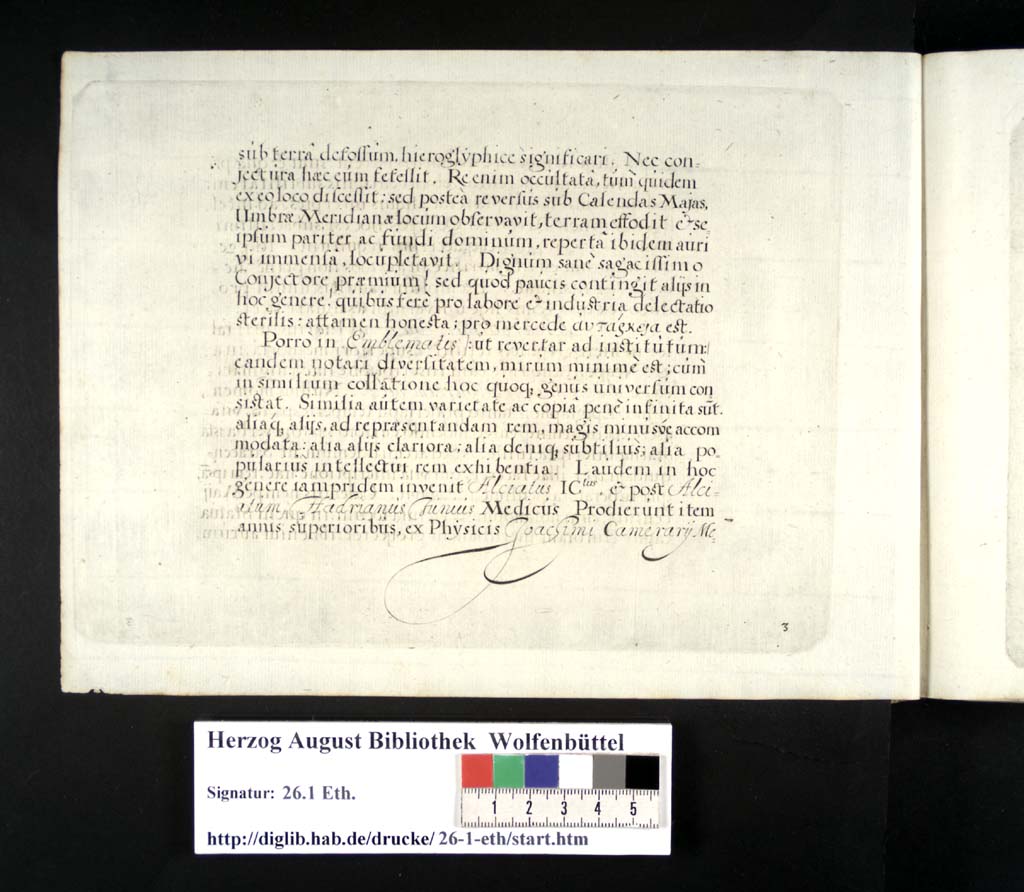 sub terrâ defossum, hieroglyphicè significari. Nec con-
jectura hæc eum fefellit. Re enim occultatâ, tum quidem
ex eo loco discessit: sed posteà reversus sub Calendas Majas,
Umbræ Meridianæ locum observavit, terram effodit & se
ipsum pariter ac fundi dominum, repertâ ibidem auri
vi immensâ, locupletavit. Dignum sanè sagacissimo
Conjectore præmium! sed quod paucis contingit alijs in
hoc genere! quibus ferè pro labore & industria delectatio
sterilis: attamen honesta: pro mercede αυτάρκεια est.
Porrò in Emblematis |:ut revertar ad institutum:|
eandem notari diversitatem, mirum minimè est; cum
in similium collatione hoc quoq, genus universum con
sistat. Similia autem varietate ac copiâ penè infinita sut̄.
alia q, alijs, ad repræsentandam rem, magis minusve accom
modata: alia alijs clariora: alia deniq, subtilius; alia po-
pularius intellectui rem exhibentia. Laudem in hoc
genere iampridem invenit Alciatus ICtus. & post Alci-
atum Hadrianus Junius Medicus Prodierunt item
annis superioribus, ex Physicis Joachimi Camerarij Me-
3
Herzog August Bibliothek Wolfenbüttel
Signatur: 26.1 Eth.
1 2 3 4 5
http://diglib.hab.de/drucke/ 26-1-eth/start.htm